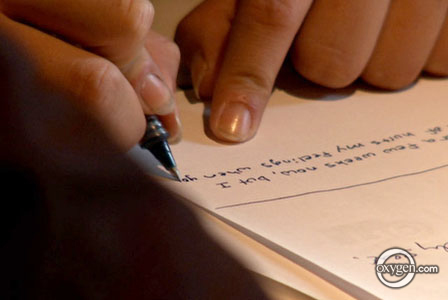 few weeks now, but I
hurts my feelings when yo
oxygen.com